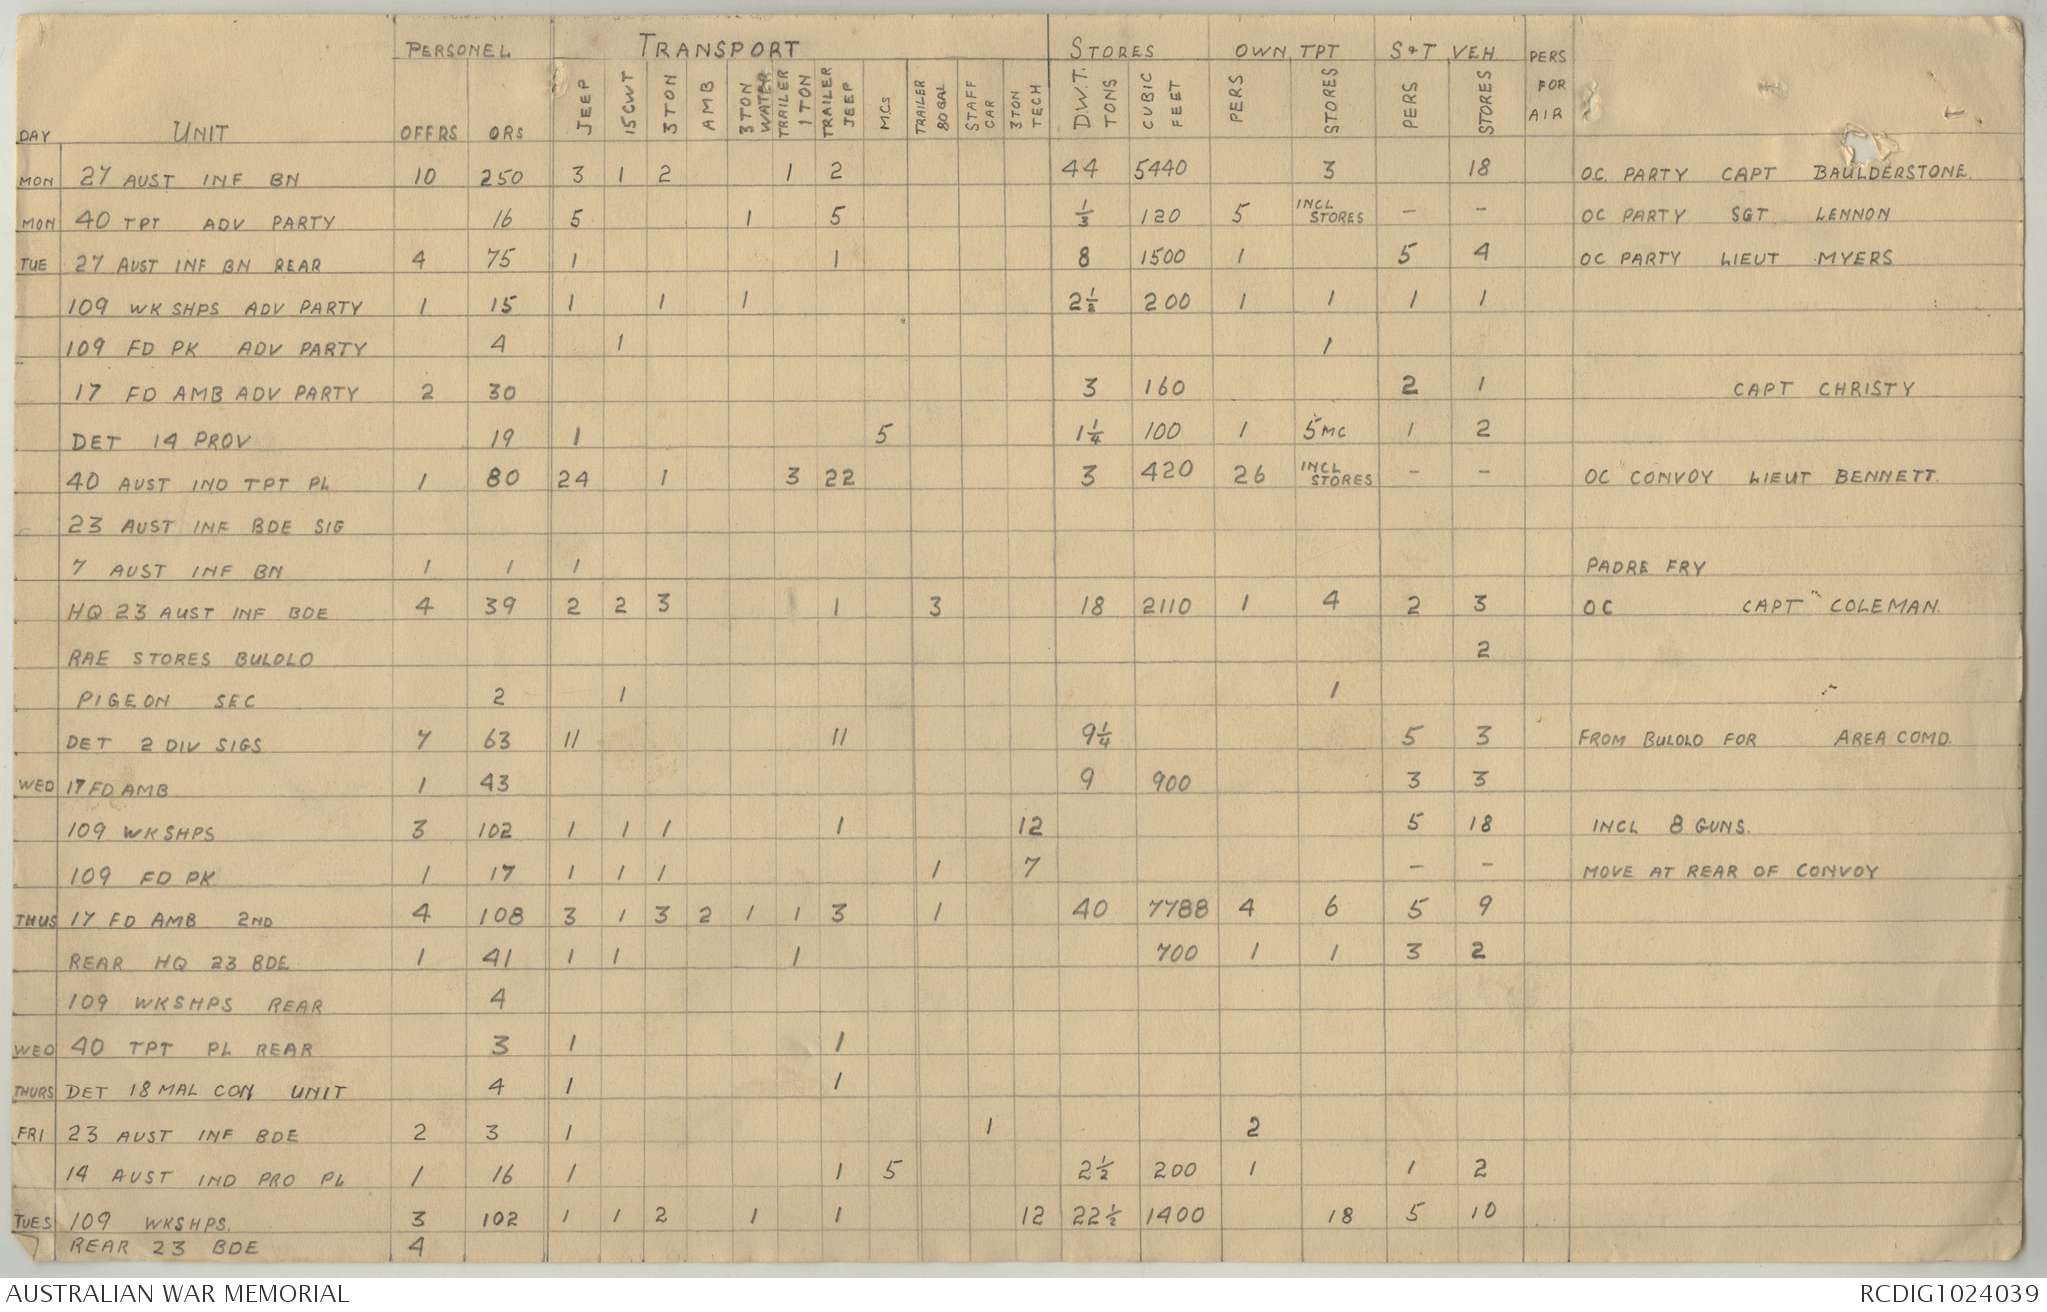 PERSONEL TRANSPORT STORES OWN TPT S & T VEH PERS FOR AIR
DAY UNIT OFFRS ORs JEEP 15CWT 3TON AMB 3TON WATER TRAILER 1TON TRAILER JEEP M.Cs TRAILER 80GAL STAFF CAR 3TON TECH D.W.T. TONS CUBIC FEET PERS STORES PERS STORES
MON 27 AUST INF BN 10 250 3 1 2 1 2 44 5440 3 18 OC. PARTY CAPT BAULDERSTONE.
MON 40 TPT ADV PARTY 16 5 1 5 1/3 120 5 INCL STORES – – OC PARTY SGT LENNON
TUE 27 AUST INF BN REAR 4 75 1 1 8 1500 1 5 4 OC PARTY LIEUT MYERS
109 WKSHPS ADV PARTY 1 15 1 1 1 2½ 200 1 1 1 1
109 FD PK ADV PARTY 4 1 1
17 FD AMB ADV PARTY 2 30 3 160 2 1 CAPT CHRISTY
DET 14 PROV 19 1 5 1¼ 100 1 5MC 1 2
40 AUST IND TPT PL 1 80 24 1 3 22 3 420 26 INCL STORES – – OC CONVOY LIEUT BENNETT.
23 AUST INF BDE SIG
7 AUST INF BN 1 1 1 PADRE FRY
HQ 23 AUST INF BDE 4 39 2 2 3 1 3 18 2110 1 4 2 3 OC CAPT COLEMAN.
RAE STORES BULOLO 2
PIGEON SEC 2 1 1
DET 2 DIV SIGS 7 63 11 11 9¼ 5 3 FROM BULOLO FOR AREA COMD.
WED 17 FD AMB 1 43 9 900 3 3
109 WKSHPS 3 102 1 1 1 1 12 5 18 INCL 8 GUNS.
109 FD PK 1 17 1 1 1 1 7 – – MOVE AT REAR OF CONVOY
THUS 17 FD AMB 2ND 4 108 3 1 3 2 1 1 3 1 40 7788 4 6 5 9
REAR HQ 23 BDE 1 41 1 1 1 700 1 1 3 2
109 WKSHPS REAR 4
WED 40 TPT PL REAR 3 1 1
THURS DET 18 MAL CON UNIT 4 1 1
FRI 23 AUST INF BDE 2 3 1 1 2
14 AUST IND PRO PL 1 16 1 1 5 2½ 200 1 1 2
TUES 109 WKSHPS. 3 102 1 1 2 1 1 12 22½ 1400 18 5 10
REAR 23 BDE 4
AUSTRALIAN WAR MEMORIAL RCDIG1024039